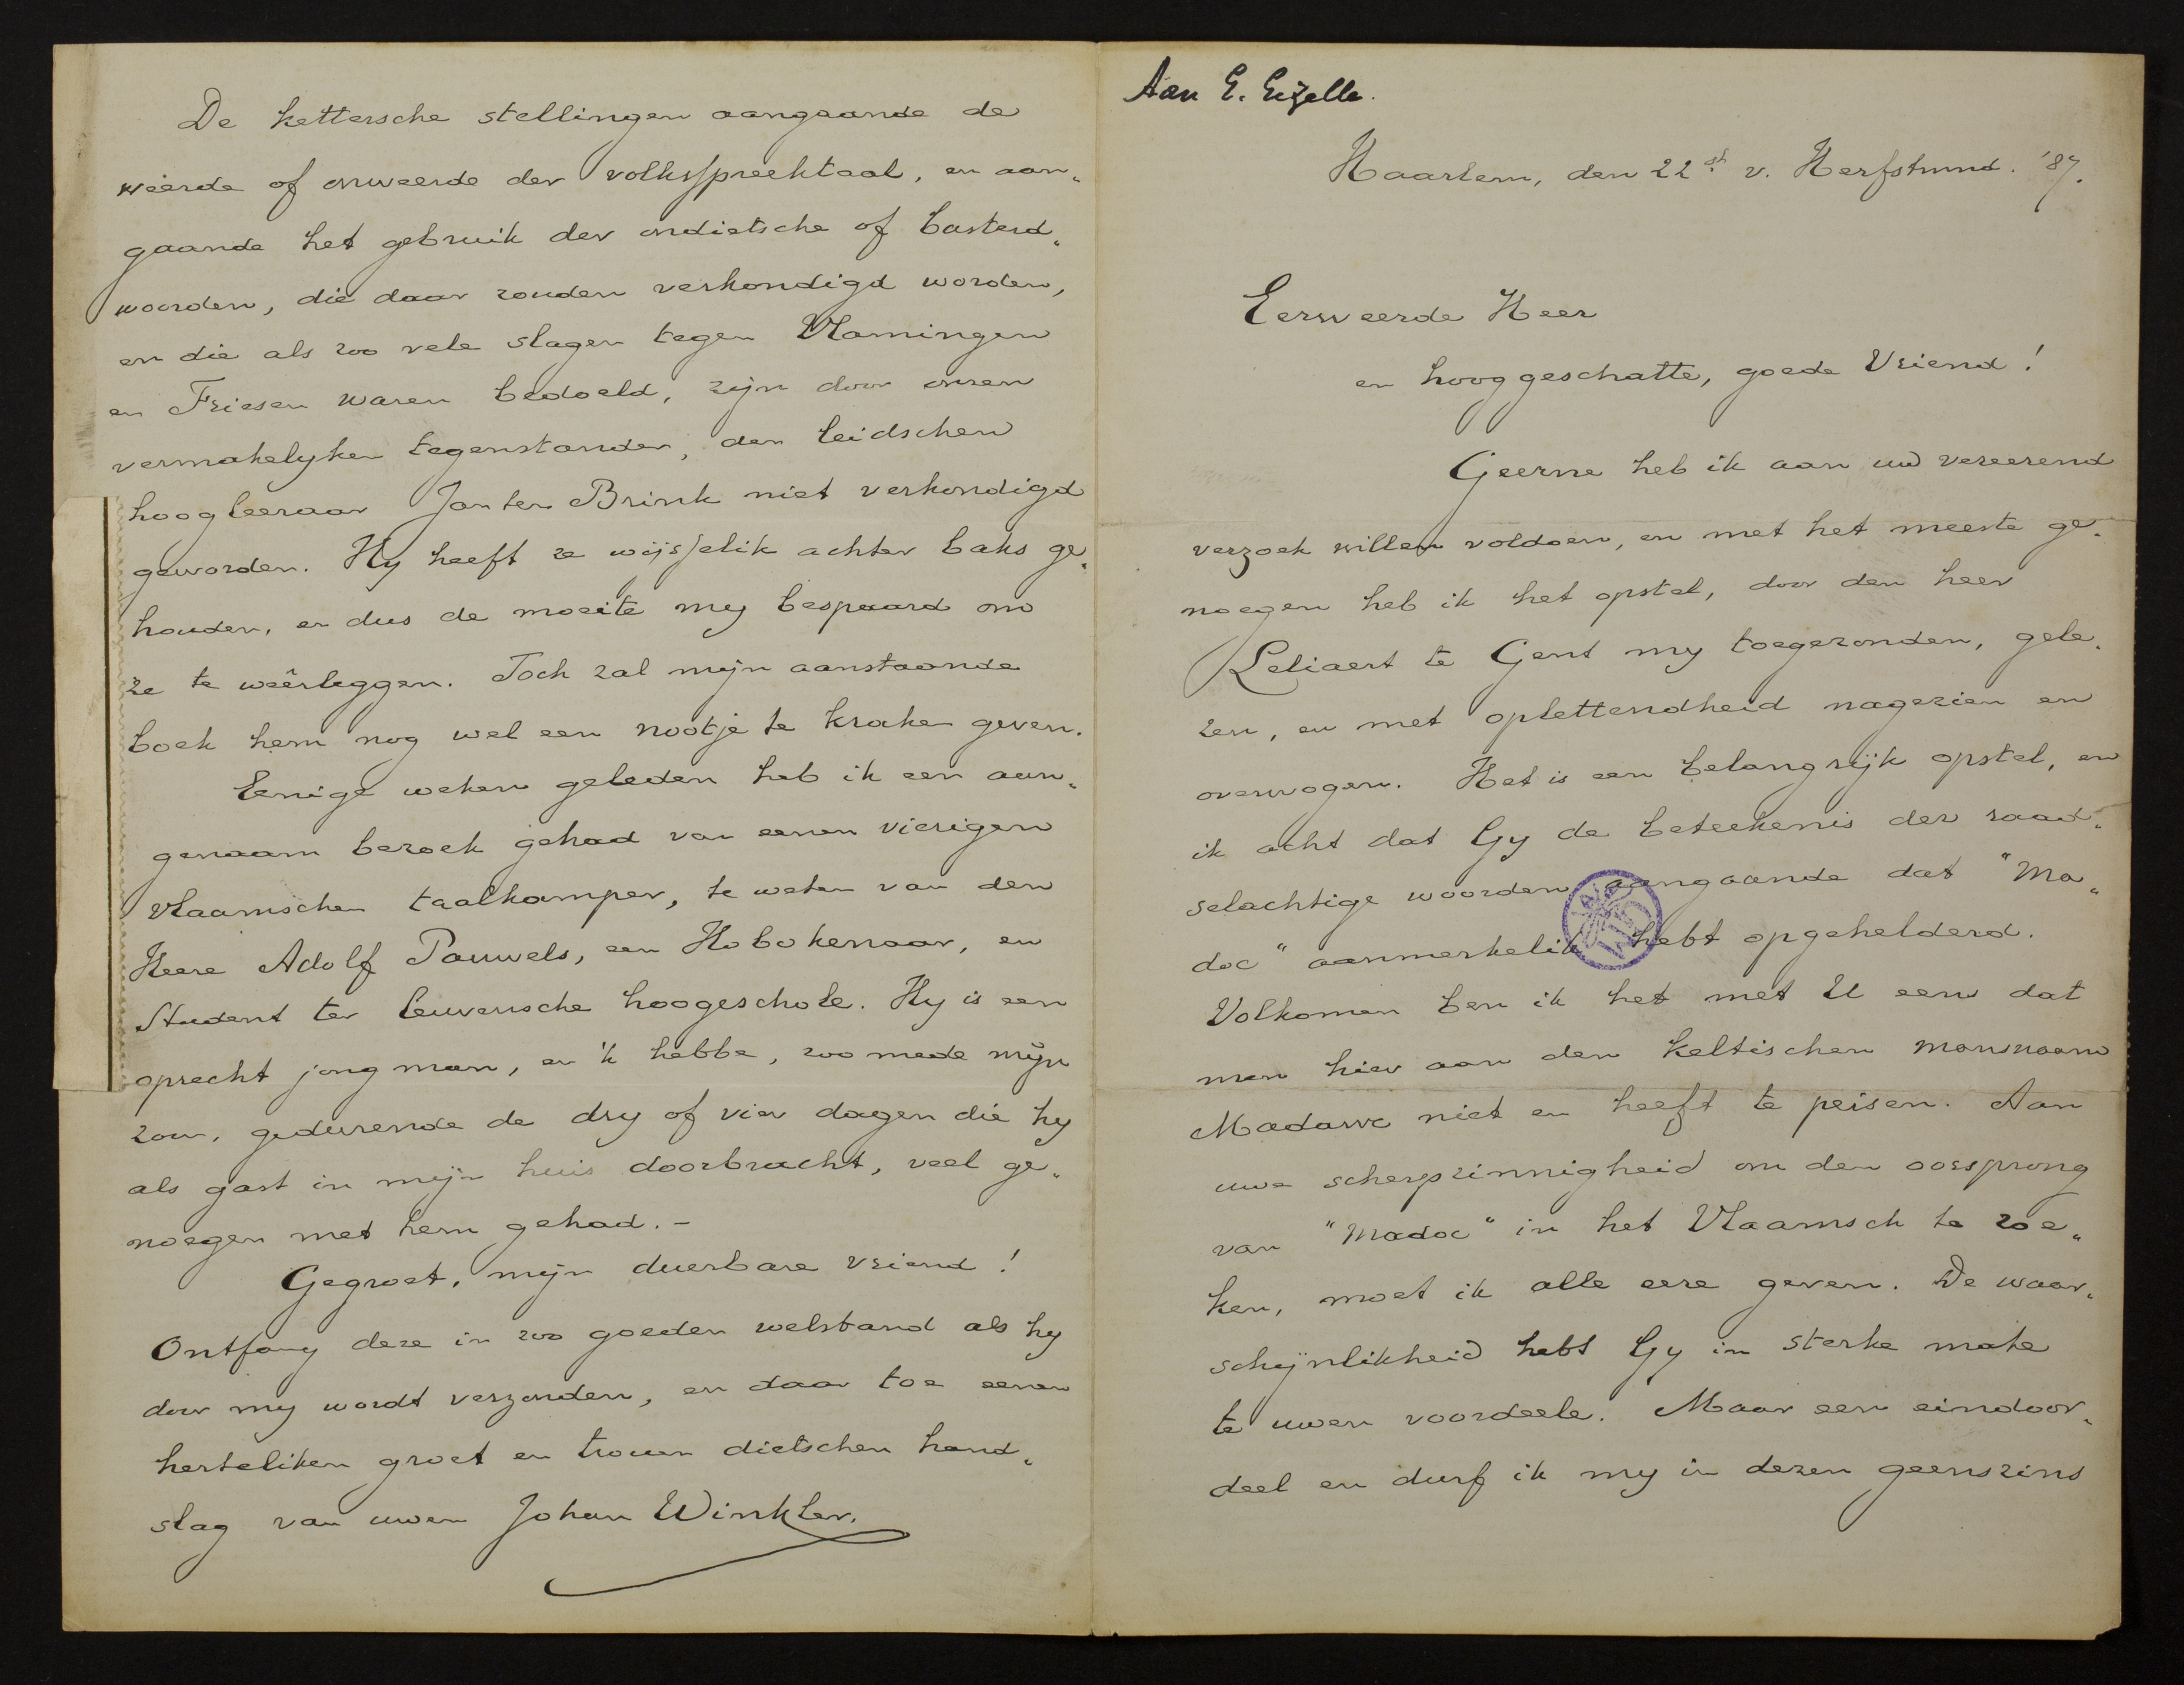 Aan E. Gezelle.
Haarlem, den 22st v. Herfstmnd. '87.
Eerweerde Heer
en hooggeschatte, goede Vriend!
Geerne heb ik aan uw vereerend
verzoek willen voldoen, en met het meeste ge„
noegen heb ik het opstel, door den heer
Leliaert te Gent my toegezonden, gele„
zen, en met oplettendheid nagezien en
overwogen. Het is een belangrijk opstel, en
ik acht dat Gy de beteekenis der raad„
selachtige woorden aangaande dat "Ma„
doc" aanmerkelik hebt opgehelderd.
Volkomen ben ik het met U eens dat
men hier aan den keltischen mansnaam
Madawc niet en heeft te peisen. Aan
uwe scherpzinnigheid om den oorsprong
van "Madoc" in het Vlaamsch te zoe„
ken, moet ik alle eere geven. De waar„
schijnlikheid hebt Gy in sterke mate
te uwen voordeele. Maar een eindoor„
deel en durf ik my in dezen geenszins
De kettersche stellingen aangaande de
weerde of onweerde der volksspreektaal, en aan„
gaande het gebruik der ondietsche of basterd„
woorden, die daar zouden verkondigd worden,
en die als zoo vele slagen tegen Vlamingen
en Friesen waren bedoeld, zijn door onsen
vermakelyken tegenstander, den leidschen
hoogleeraar Jan ten Brink niet verkondigd
geworden. Hy heeft ze wijsselik achter baks ge„
houden, en dus de moeite my bespaard om
ze te weêrleggen. Toch zal mijn aanstaande
boek hem nog wel een nootje te kraken geven.
Eenige weken geleden heb ik een aan„
genaam bezoek gehad van eenen vierigen
vlaamschen taalkamper, te weten van den
Heere Adolf Pauwels, een Hobokenaar, en
Student ter leuvensche hoogeschole. Hy is een
oprecht jong man, en 'k hebbe, zoo mede mijn
zon, gedurende de dry of vier dagen die hy
als gast in mijn huis doorbracht, veel ge„
noegen met hem gehad. -
Gegroet, mijn duerbare vriend!
Ontfang deze in zoo goeden welstand als hy
door my wordt verzonden, en daar toe eenen
herteliken groet en trouen dietschen hand„
slag van uwen Johan Winkler.